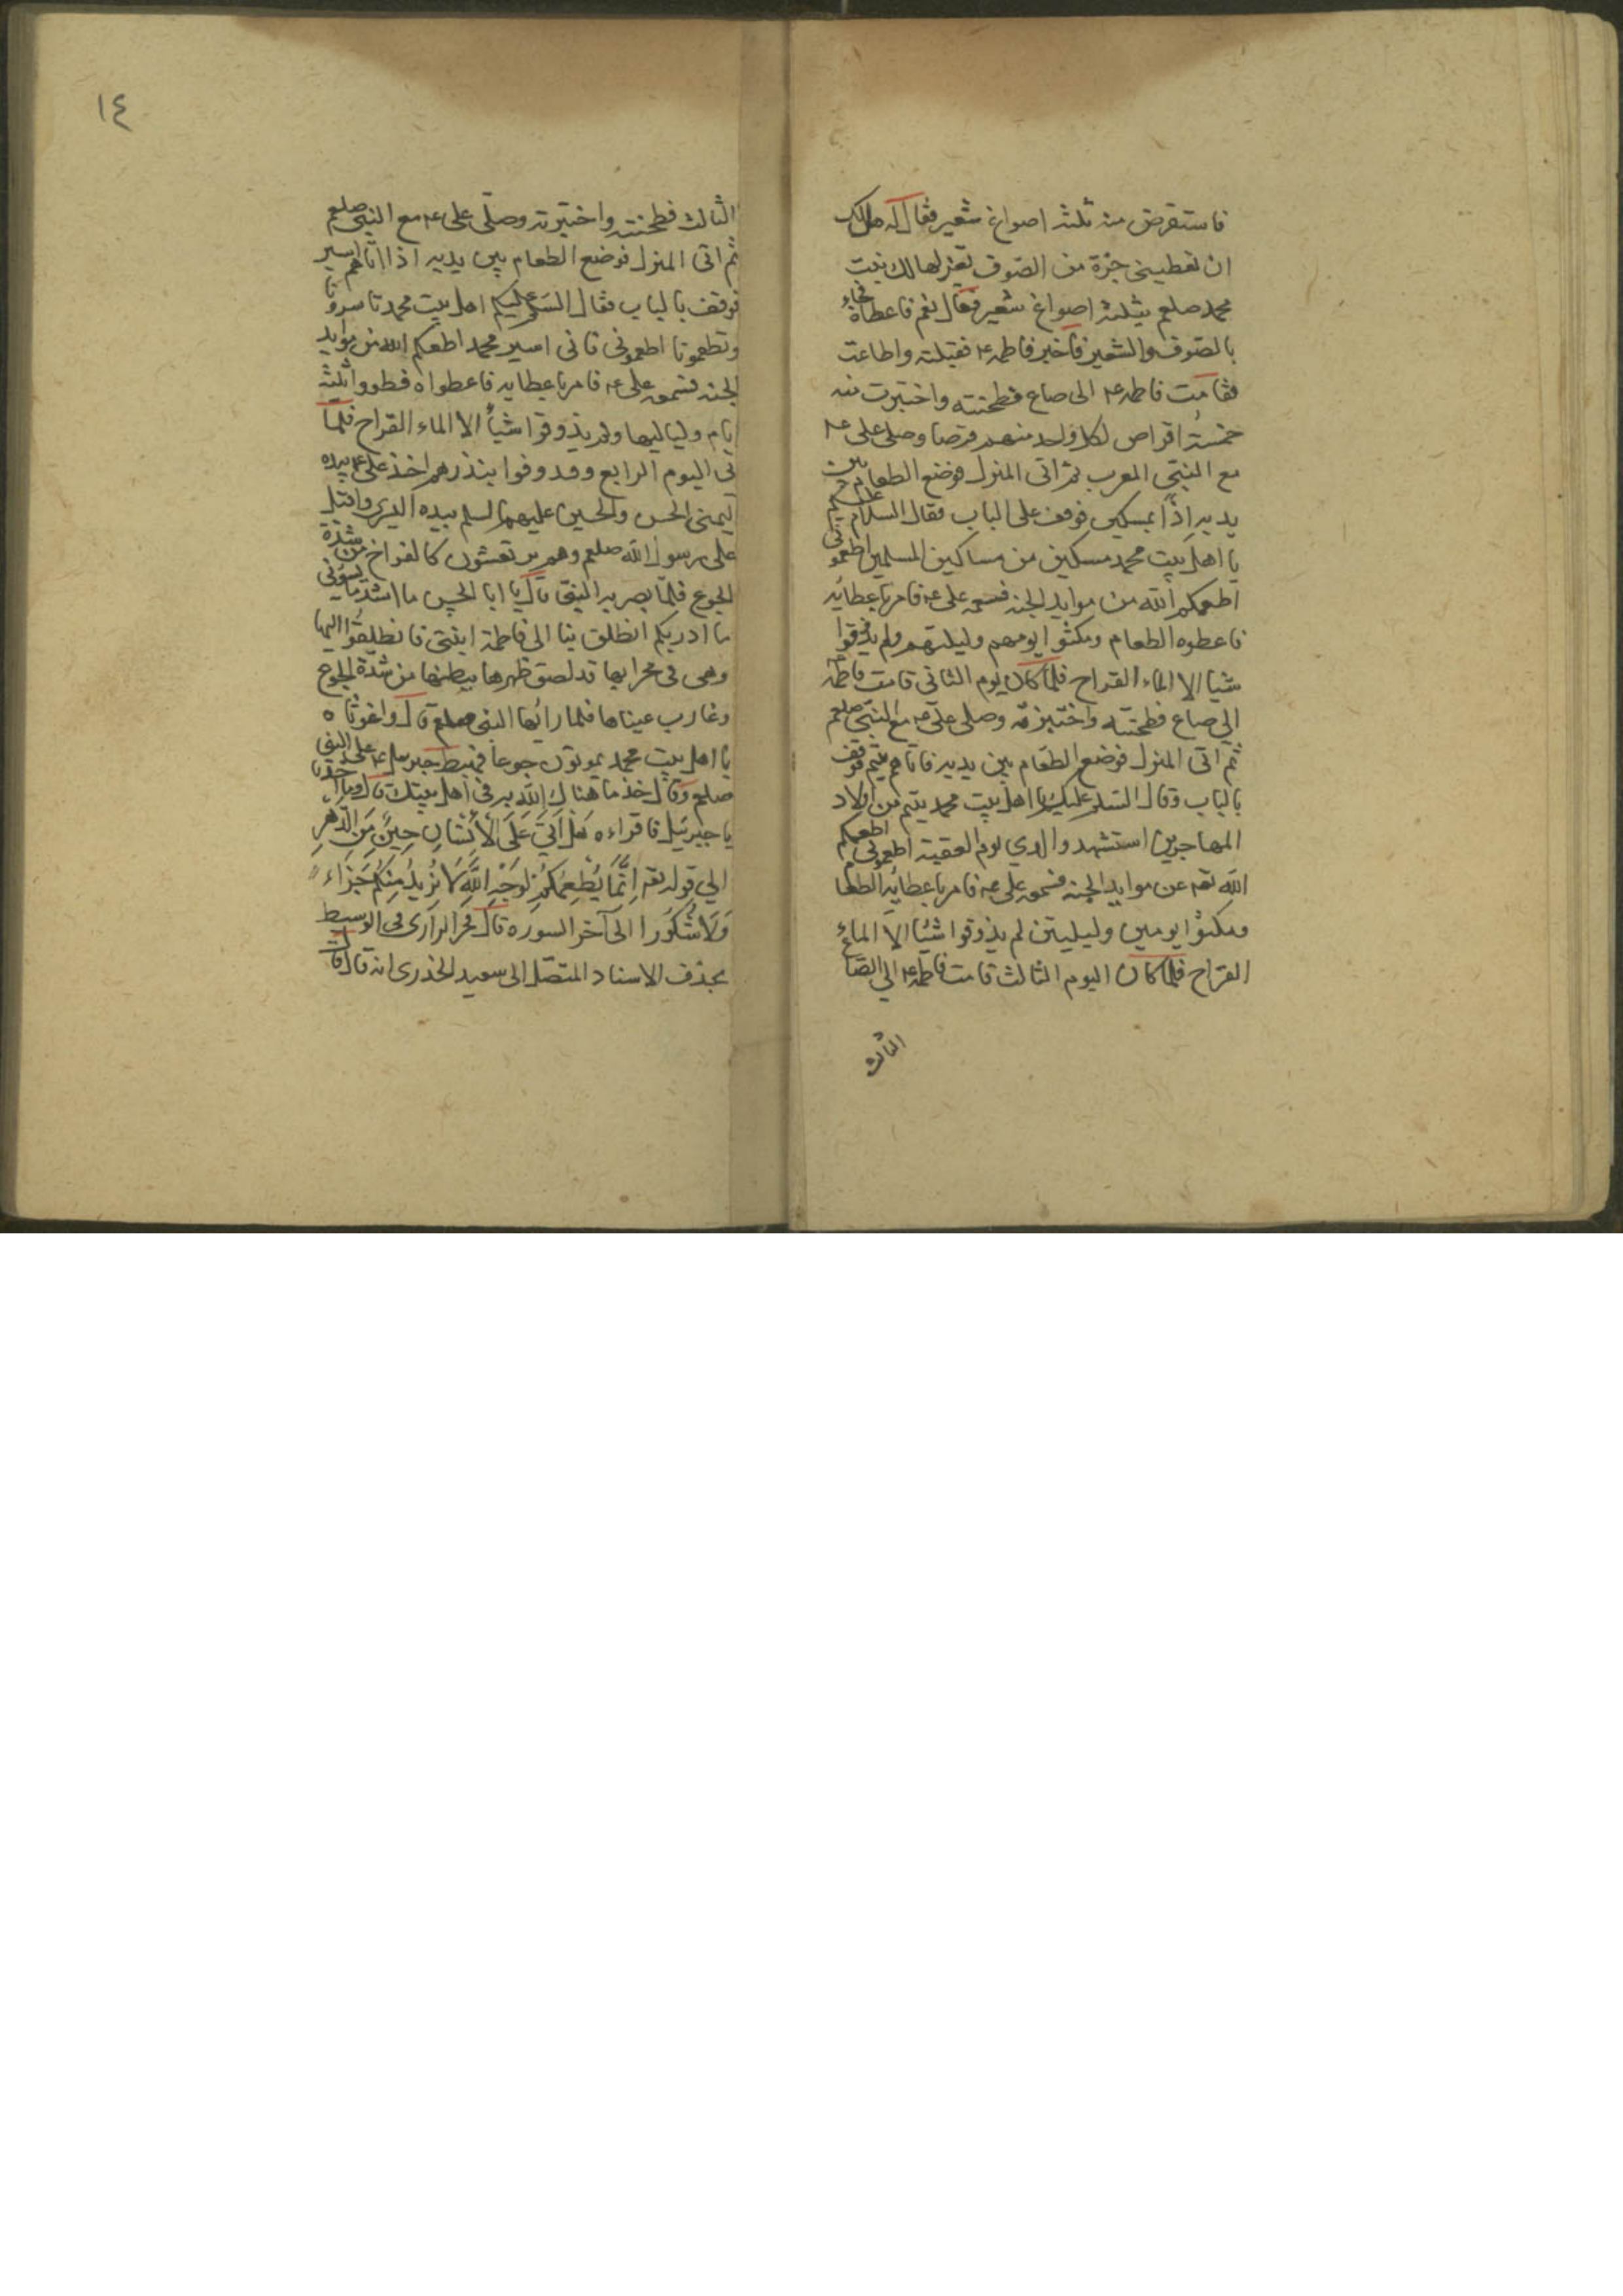 فاستقرض منه ثلثة اصواغ شعير فقال له هل لك
ان تعطيني جزة من الصوف تغزلها لك بنت
محمد صلعم بثلثة اصواغ شعير فقال نعم فاعطاه فجاء
بالصوف والشعير فاخبر فاطمه ع فقبلته واطاعت
فقامت فاطمه ع الى صاع فطحنته واختبزت منه
خمسة اقراص لكل واحد منهم قرصا وصلى على ع
مع النبي المغرب ثم اتى المنزل فوضع الطعام بين
يديه اذا بمسكين فوقف على الباب فقال السلام عليكم
يا اهل بيت محمد مسكين من مساكين المسلمين اطعموني
اطعمكم الله من موايد الجنه فسمعه على ع فامر باعطائه
فاعطوه الطعام ومكثوا يومهم وليلتهم ولم يذوقوا
شيا الا الماء القراح فلما كان يوم الثاني قامت فاطمه
الي صاع فطحنته واختبزته وصلى على ع مع النبي صلعم
ثم اتى المنزل فوضع الطعام بين يديه فاتاهم يتيم فوقف
بالباب وقال السلم عليكم يا اهل بيت محمد يتيم من اولاد
المهاجرين استشهد والدي يوم العقبة اطعموني اطعمكم
الله تعه عن موايد الجنه فسمعه على ع فامر باعطائه الطعا
ومكثوا يومين وليليتن لم يذوقوا شيئا الا الماء
القراح فلما كان اليوم الثالث قامت فاطمه ع الي الصاع
الثالث
١٤
الثالث فطحنته واختبزته وصلى على ع مع النبي صلعم
ثم اتى المنزل فوضع الطعام بين يديه اذا اتاهم اسير
فوقف بالباب فقال السلم عليكم اهل بيت محمد تاسرونا
وتطعمونا اطعموني فاني اسير محمد اطعمكم الله من موايد
الجنه فسمعه على ع فامر باعطايه فاعطواه فطووا ثلثة
ايام ولياليها ولم يذوقوا شيأ الا الماء القراح فلما
اتى اليوم الرابع وقد وفوا بنذرهم اخذ على ع بيده
اليمنى الحسن والحسين عليهما السلم بيده اليسرى واقبل
على رسول الله صلعم وهم يرتعشون كالفراخ من شدة
الجوع فلما بصر به النبي قال يا ابا الحسن ما اشد ما يسؤني
ما ادريكم انطلق بنا الى فاطمة ابنتى فانطلقوا اليها
وهى فى محرابها قد لصق ظهرها ببطنها من شدة الجوع
وغارب عيناها فلما رائها النبى صلعم قال واغوثاه
يا اهل بيت محمد يموتون جوعا فهبط جبريل ع على النبي
صلعم وقال خذ ما هناك الله به في اهل بيتك قال وما اخذ يا
يا جبرئيل فاقراءه هَلْ أَتىَ عَلَى الأِنْسَانِ حِينٌ مِنَ الدَّهْرِ
الي قوله تعه إِنَّمَا نُطْعِمُكُمْ لِوَجْهِ اللَّهِ لَا نُرِيدُ مِنْكُمْ جَزَاءً
وَلَا شُكُورًا الى آخر السوره قال فخر الرازى فى الوسيط
بحذف الاسناد المتصل الى سعيد الخذرى انه قال قال